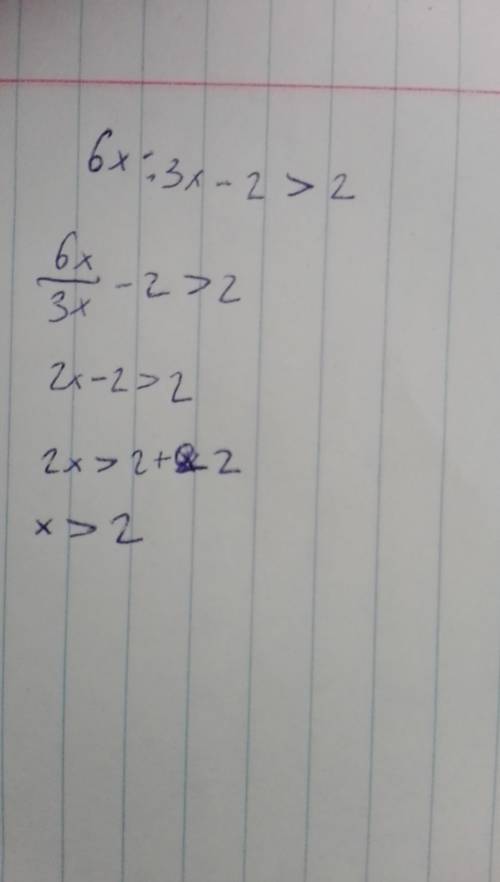 6x:3x-2>2
6x/3x-2>2
2x-2>2
2x>2+2
x>2